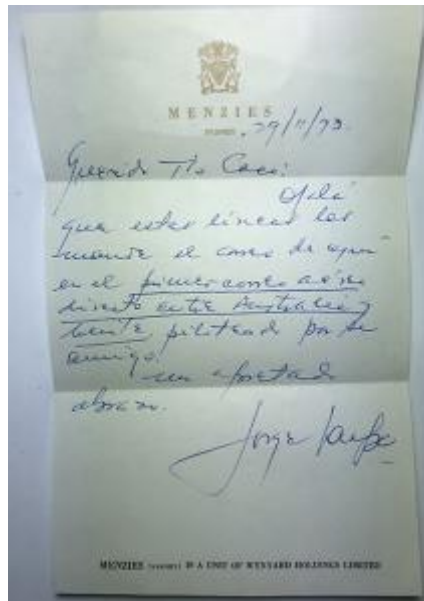 MENZIES
SYDNEY
29/11/73.
Querido Tío Caco:
Ojalá
que estas líneas las
mande el correo de aquí
en el primer correo aéreo
directo entre Australia y
piloteado por su
amigo.
un apretado
abrazo.
Jorge
MENZIES (SYDNEY) IS A UNIT OF WYNYARD HOLDINGS LIMITED